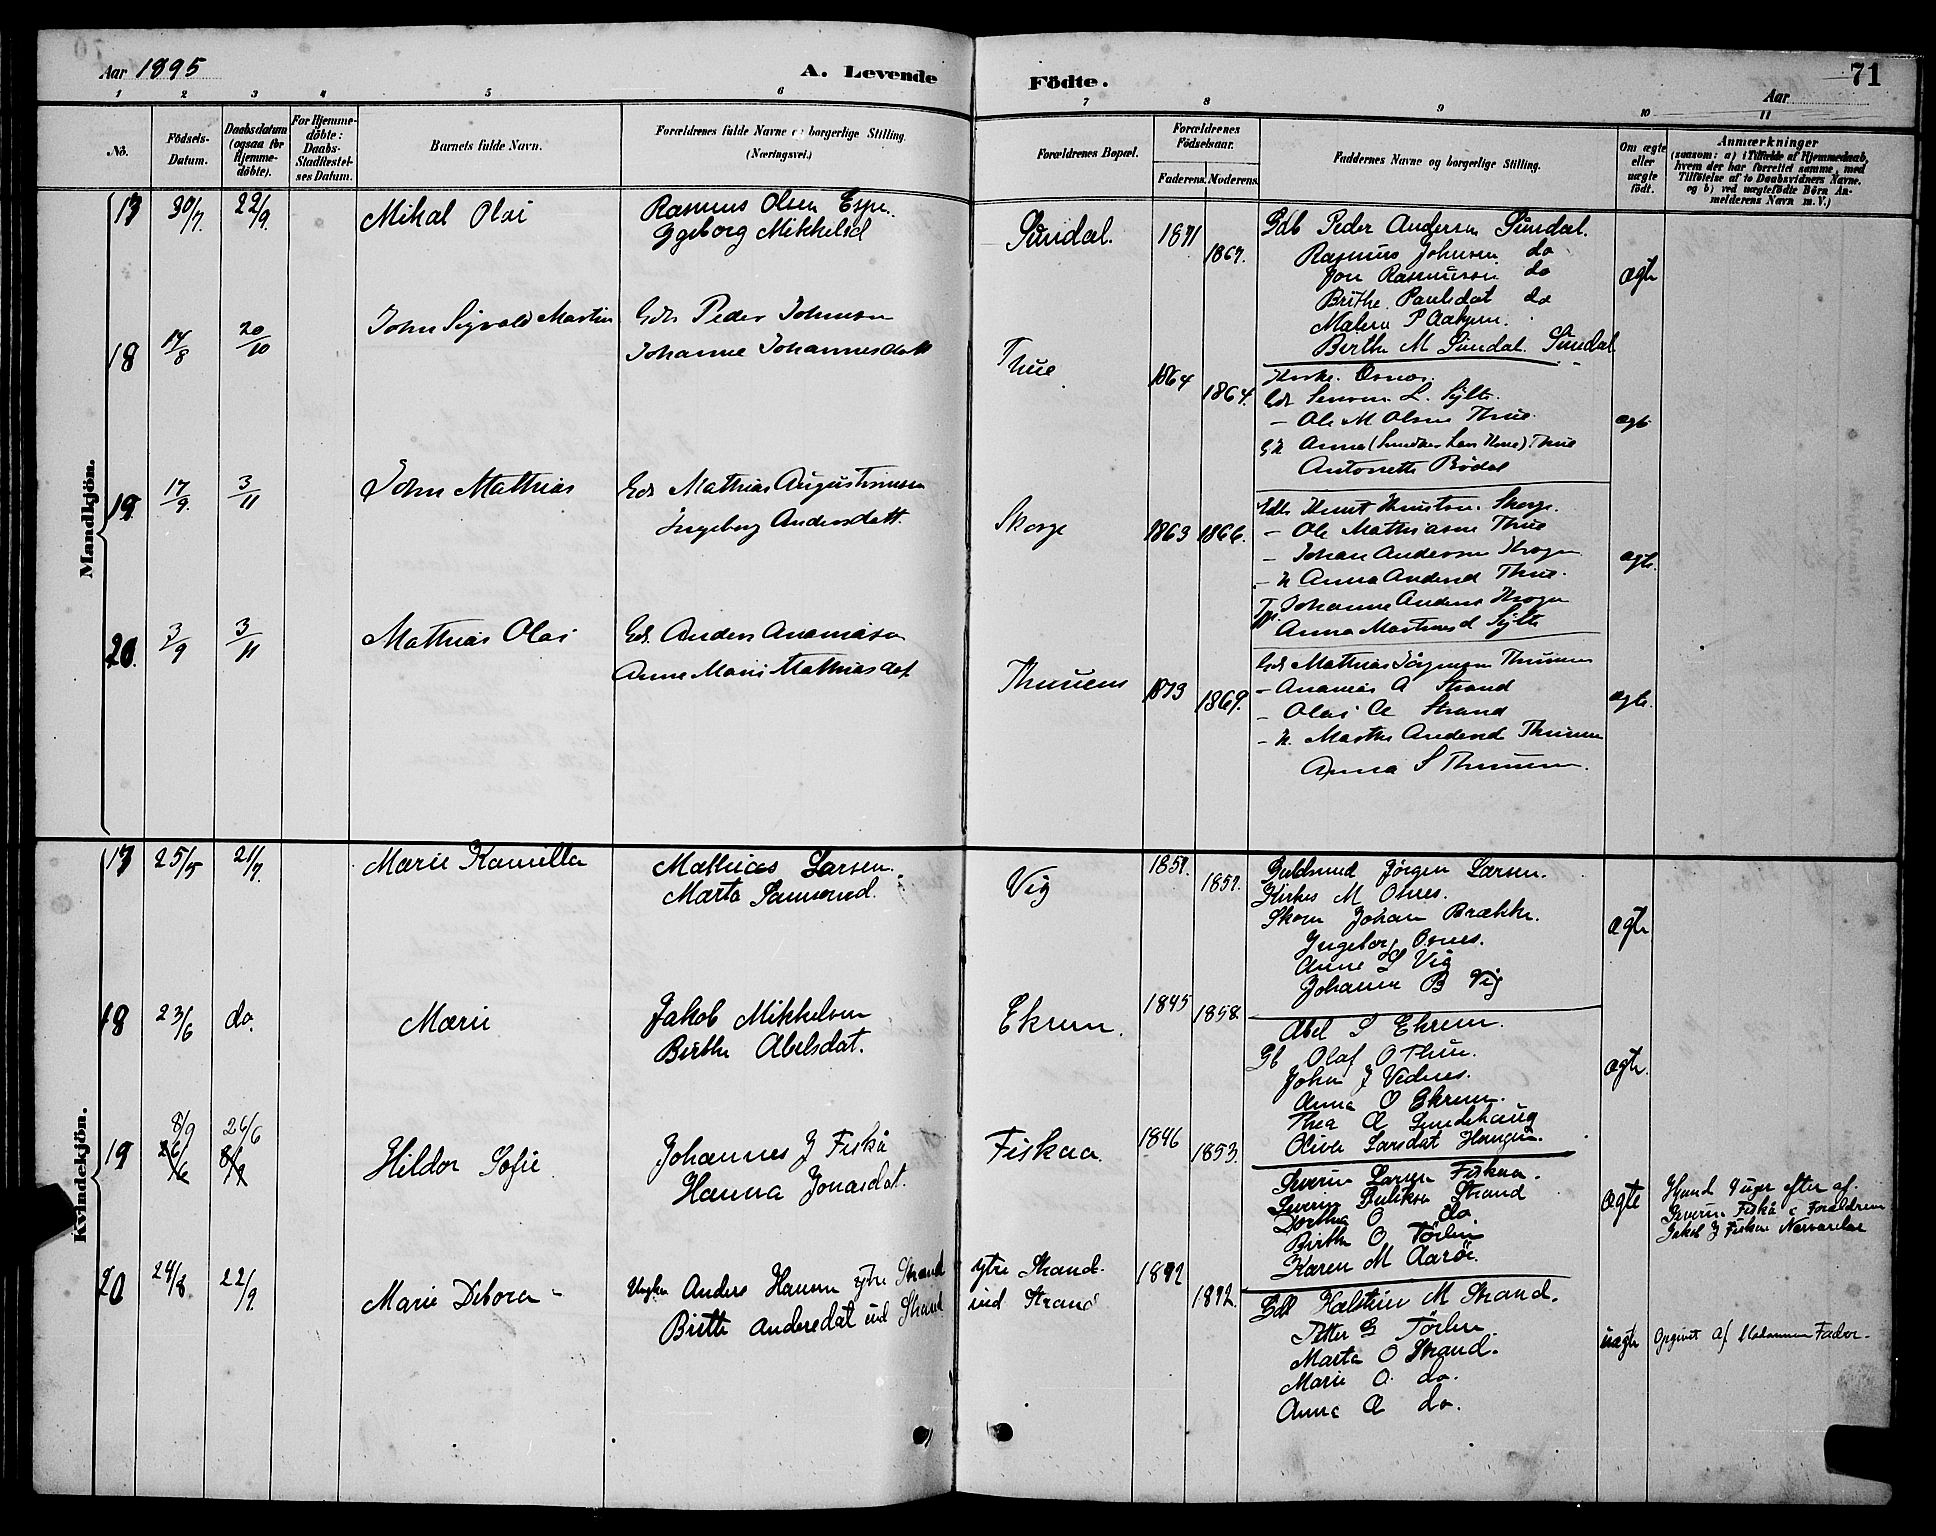 Aar 1895
A. Levende
Födte.
71
Aar
1 2 3 4 5 6 7 8 9 10 11
No.
Födsels-Datum.
Daabsdatum (ogsaa for Hjemme-döbte).
For Hjemme-döbte: Daabs-Stadfæstelses Datum.
Barnets fulde Navn.
Forældrenes fulde Navne og borgerlige Stilling. (Næringsvei.)
Forældrenes Bopæl.
Forældrenes Födselsaar.
Faderens. Moderens.
Faddernes Navne og borgerlige Stilling.
Om ægte eller uægte födt.
Anmærkninger (saasom: a) i Tilfælde af Hjemmedaab, hvem der har forrettet samme, med Tilföielse af to Daabsvidners Navne, og b) ved uægtefödte Börn Anmelderens Navn m. V.)
Mandkjön.
17 30/7. 22/9. Mikal Olai
Rasmus Olsen Espe.
Igeborg Mikkelsd
Sundal. 1871 1867.
Gdb Peder Andersen Sundal.
Rasmus Johnsen do
Jon Rasmussen do
Brithe Paulsdat do
Malene P Aakjem.
Birthe M Sundal. Sundal
ægte
18 14/8 20/10 John Sigvald Martin
Gdr Peder Johnsen
Johanne Johannesdatt
Thue 1864 1864.
Kirks. Osnes.
Gdr Simon L. Sylte.
- Ole M Olsen Thue
Antonette Bödal
ægte
19. 17/9. 3/11 John Mathias
Gdr Mathias Augustinusen
Ingeborg Andersdatt.
Skorge 1863 1866.
Gdr Knut Knutsen Skorge.
- Ole Mathiasen Thue
- Johan Andersen Krogen
- K Anna Andersd Thue.
Johanne Anders Krogen
Anna Martinusd Sylte
ægte.
20. 3/9 3/11 Mathias Olai
Gdr. Anders Ananiasen
Anne Marie Mathiasdat
Thuuens 1873 1869.
Gdr Mathias Jörgensen Thunem
- Ananias A Strand
- Olai A Strand
- K. Marthe Andersd Thunem
Anna S Thunem.
ægte.
Kvindekjön.
17 25/5 21/7. Marie Kamilla
Mathias Larsen.
Marta Samonsd.
Vig 1851. 1851.
Guldsmed Jörgen Larsen.
Kirkes M Osnes.
Skom Johan Brække.
Ingeborg Osnes.
Anne S Vig
Johanna B Vig
ægte
18 23/6 do. Marie
Jakob Mikkelsen
Birthe Abelsdat.
Ekrem. 1845 1858.
Abel S Ekrem.
Gb Olaf O Thue.
Johan J Vednes.
Anna O Ekrem.
Thea A Lundehaug
Olive Larsdat Haugen.
ægte.
19 8/9 26/6 26/6 8/9 Hildor Sofie
Johannes J Fiskå
Hanna Jonasdat.
Fiskaa. 1846 1853.
Severin Larsen Fiskaa.
Severin Strand
Dorthea O do
Birthe O Törlen
Karen M Aaröe
ægte
Severin Fiskå Forældrene
Jakob J Fiskaa Nærværelse
20 24/8 22/9. Marie Debora -
Ungkar Anders Hansen ytre Strand
Birthe Andersdat ind Strand
ytre Strand.
ind Strand
1872 1872.
Gdb Halstein M Strand.
Petter G Törlen
Marta O Strand.
Marie O. do.
Anna A do.
uægte Opgivet Af Fader.